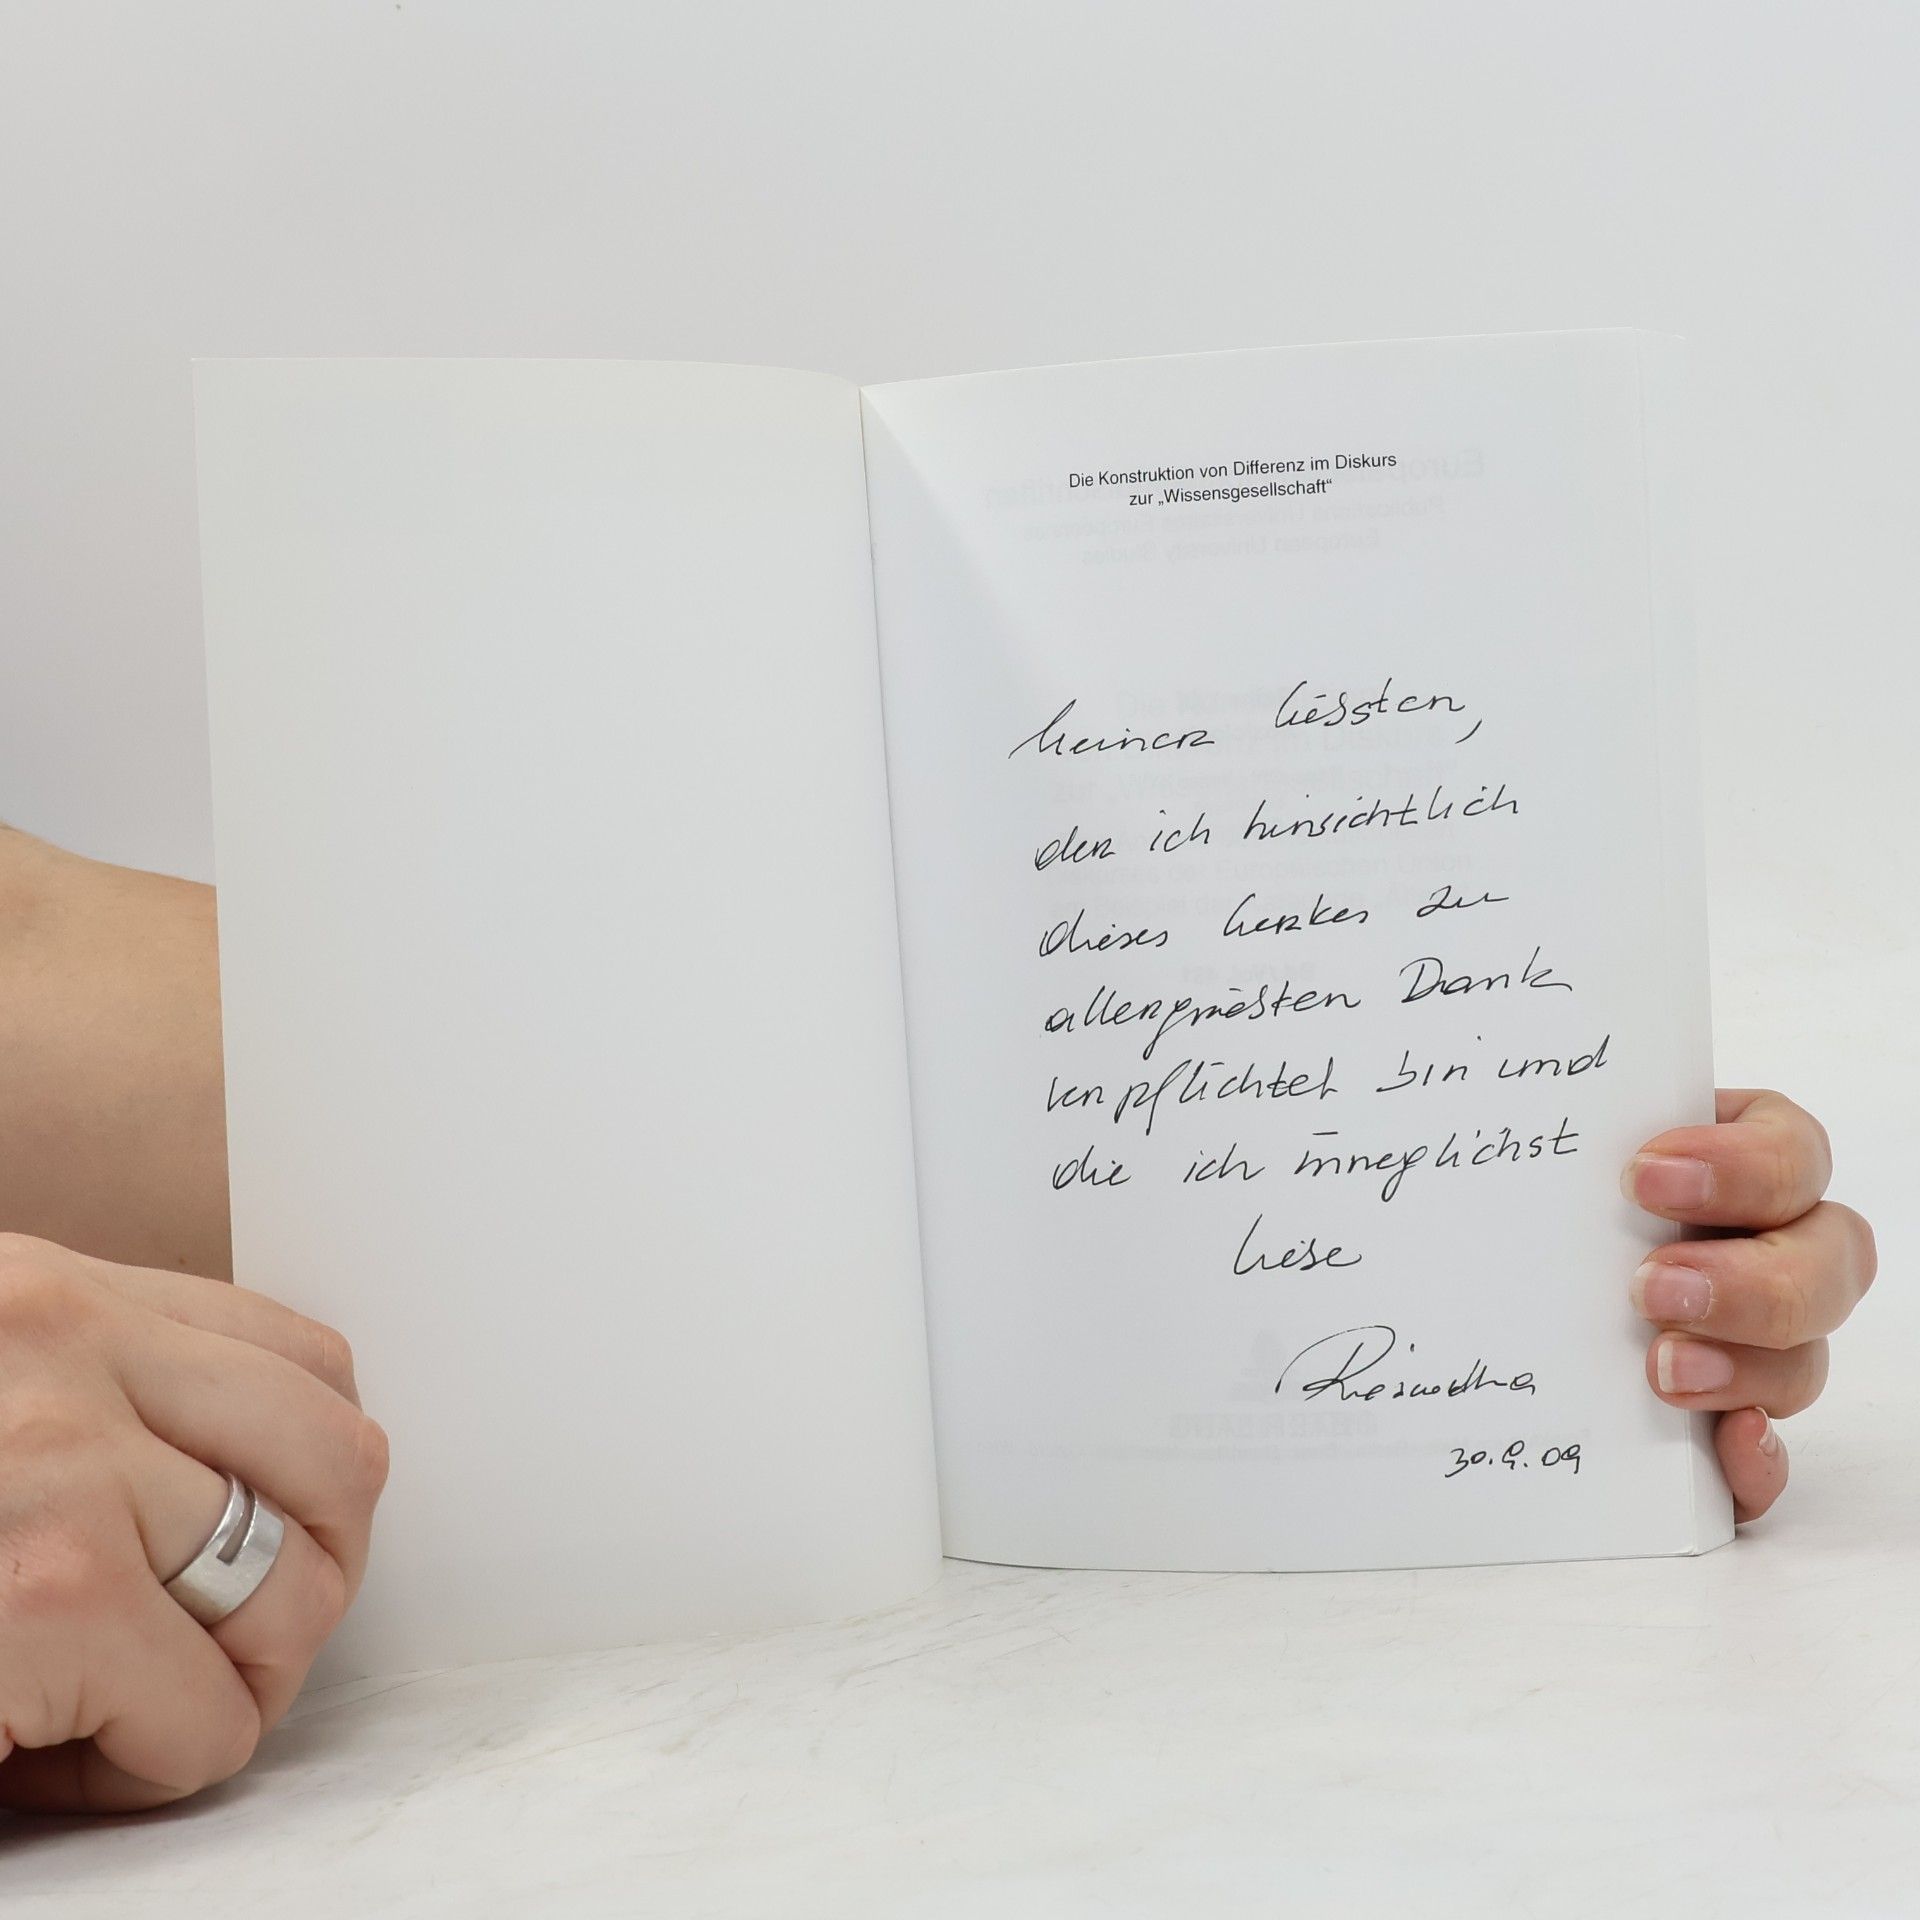 Die Konstruktion von Differenz im Diskurs
zur „Wissensgesellschaft“
Meiner Liebsten,
der ich hinsichtlich
dieses Werkes zu
allergrößten Dank
verpflichtet bin und
die ich inniglichst
liebe
30.9.09